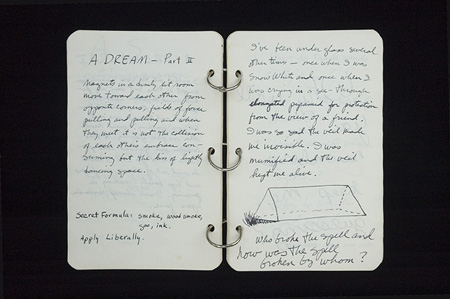 A DREAM — Part II
Magnets in a dimly lit room
move toward each other from
opposite corners, fields of force
pulling and pulling and when
they meet it is not the collision
of each other's embrace con-
suming but the hiss of lightly
dancing space.
Secret Formula: smoke, wood smoke,
ink.
Apply Liberally.
I've been under glass several
other times — once when I was
Snow White and once when I
was crying in a see-through
elongated pyramid for protection
from the view of a friend.
I was so sad the veil made
me invisible. I was
mummified and the veil
kept me alive.
Who broke the spell and
how was the spell
broken by whom?